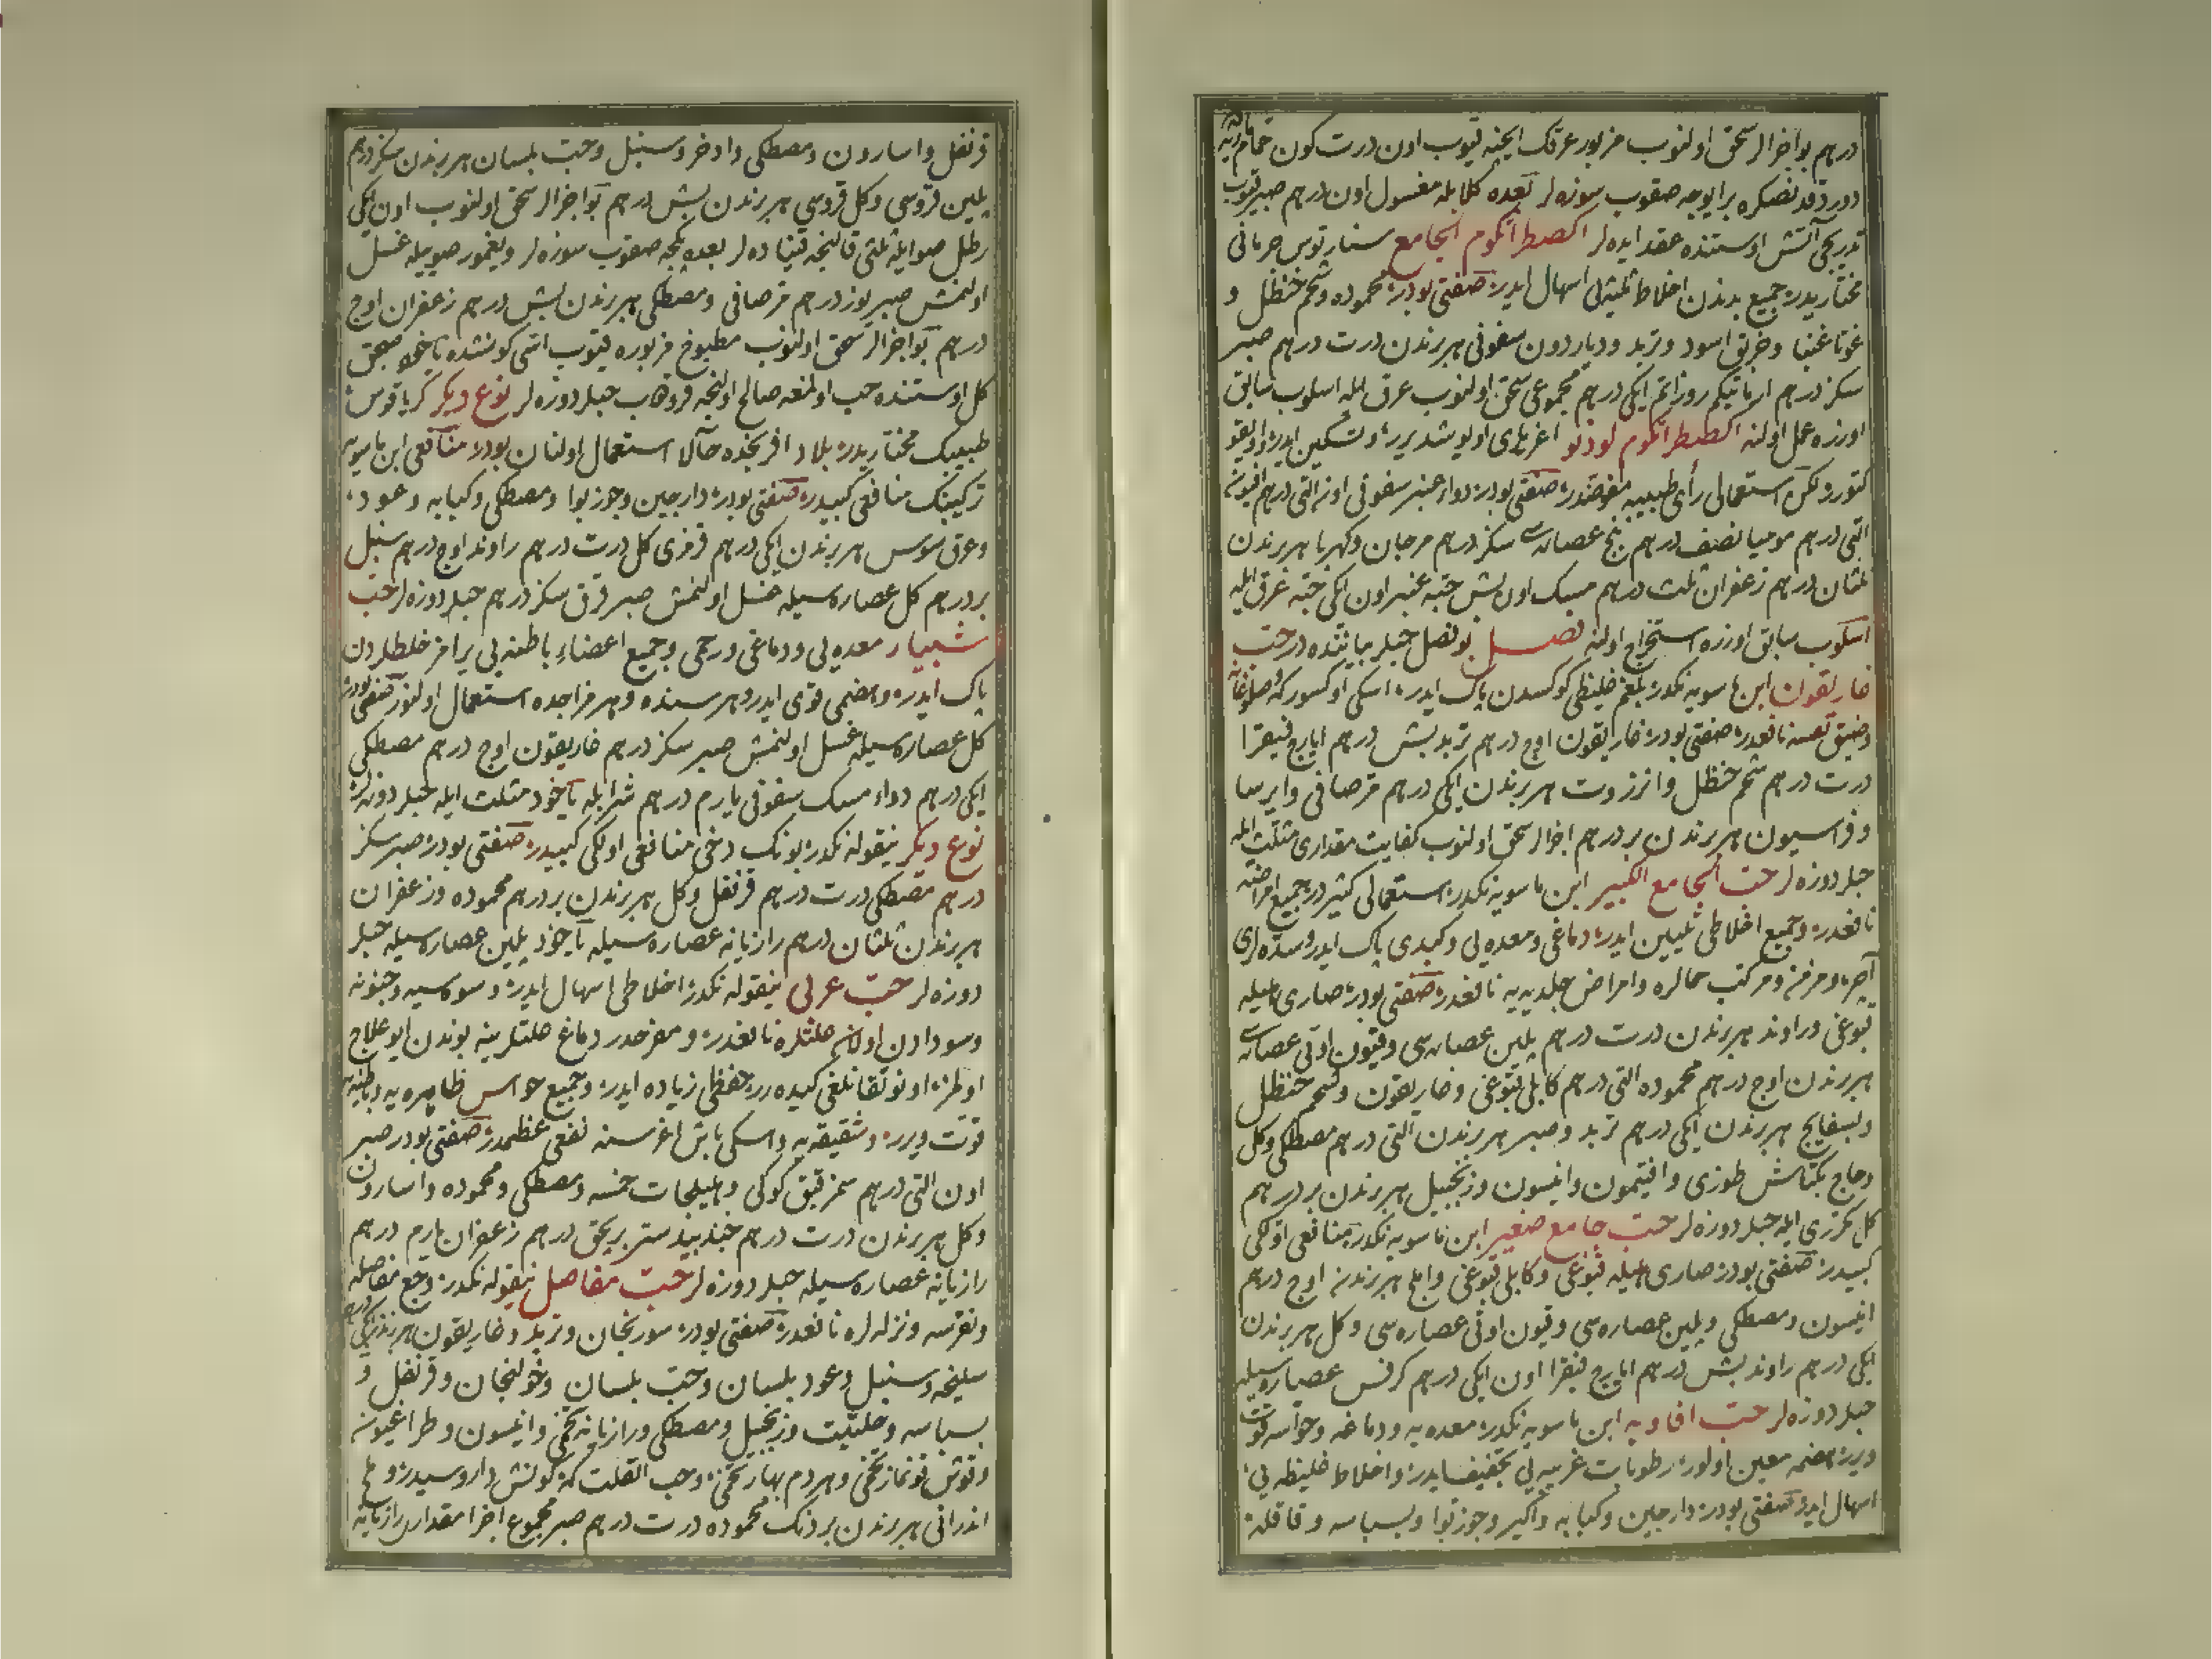 درهم بو اجزالر سحق اولنوب مزبور عرقك ايچنه قيوب اون درت كون حمام ماريه
دورددقدنصكره بر ايوجه صقوب سوزه لر بعده كلابله مغسول اون درهم صبر قيوب
تدريجى آتش اوستنده عقد ايده لر اكصطراتكوم الجامع سنارتوس جرمانى
مختاريدر جميع بدندن اخلاط ثلثه لى اسهال ايدر صفتى بودر محموده و شحم حنظل و
غوتاغنبا و خربق اسود و تربد و دياردون سفوفى هر برندن درت درهم صبر
سكز درهم ارماتيكم روزاتم ايكى درهم مجموعى سحق اولنوب عرق ايله اسلوب سابق
اوزره عمل اولنه اكصطراتكوم لودنو اغريلرى اويوشديرر و تسكين ايدر
كتورر ولكن استعمالى رأى طبيبه مفوضدر صفتى بودر دواء عنبر سفوفى اون التى درهم افيون
التى درهم موميا نصف درهم بنج عصاره سى سكز درهم مرجان و كهربا هر برندن
ثلثان درهم زعفران ثلث درهم مسك اون بش حبه عنبر اون ايكى حبه عرق ايله
اسلوب سابق اوزره استخراج اولنه فصل بو فصل حبلر بياننده در حب
غاريقون ابن ماسويه نكدر بلغم غليظى كوكسدن پاك ايدر اسكى اوكسوركه و صلوغانه
و ضيق نفسه نافعدر صفتى بودر غاريقون اوچ درهم تربد بش درهم ايارج فيقرا
درت درهم شحم حنظل و انزروت هر برندن ايكى درهم مر صافى و ايرسا
و فراسيون هر برندن بر درهم اجزالر سحق اولنوب كفايت مقدارى مثلث ايله
حبلر دوزه لر حب الجامع الكبير ابن ماسويه نكدر استعمالى كثيردر جميع امراضه
نافعدر و جميع اخلاطى تليين ايدر دماغى و معده يى و كبدى پاك ايدر و سده لرى
آچر و مزمنه و مركب حمالره و امراض جلديه يه نافعدر صفتى بودر صارى هليله
قبوغى و راوند هر برندن درت درهم پلين عصاره سى و قيون اوتى عصاره سى
هر برندن اوچ درهم محموده التى درهم كابلى قبوغى و غاريقون و شحم حنظل
و بسفايج هر برندن ايكى درهم تربد و صبر هر برندن التى درهم مصطكى و كل
و حاج بكتاش طوزى و افتيمون و انيسون و زنجبيل هر برندن بر درهم
كل سكرى ايله حبلر دوزه لر حب جامع صغير ابن ماسويه نكدر منافعى اولكى
كبيدر صفتى بودر صارى هليله قبوغى و كابلى قبوغى و املج هر برندن اوچ درهم
انيسون و مصطكى و پلين عصاره سى و قيون اوتى عصاره سى و كل هر برندن
ايكى درهم راوند بش درهم ايارج فيقرا اون ايكى درهم كرفس عصاره سيله
حبلر دوزه لر حب افاويه ابن ماسويه نكدر معده يه و دماغه و حواسه قوت
ويرر هضمه معين اولور رطوبات غريبه يى تجفيف ايدر و اخلاط غليظه يى
اسهال ايدر صفتى بودر دارچين و كبابه و اكير و جوز بوا و بسباسه و قاقله
قرنفل و اسارون و مصطكى و اذخر و سنبل و حب بلسان هر برندن سكز درهم
پلين قروسى و كل قروسى هر برندن بش درهم بو اجزالر سحق اولنوب اون ايكى
رطل صو ايله ثلثى قالنجه قينادەلر بعده كيجه صقوب سوزه لر و يغمور صوييله غسل
اولنمش صبر يوز درهم مر صافى و مصطكى هر برندن بش درهم زعفران اوچ
درهم بو اجزالر سحق اولنوب مطبوخ مزبوره قيوب اسى كونشده ياخود صيجق
كل اوستنده حب اولمغه صالح اولنجه قرودب حبلر دوزه لر نوع ديكر كرياقوس
طبيبك مختاريدر بلاد افرنجده حالا استعمال اولنان بودر منافعى ابن ماسويه
تركيبنك منافعى كبيدر صفتى بودر دارچين و جوز بوا و مصطكى و كبابه و عود
و عرق سوس هر برندن ايكى درهم قرمزى كل درت درهم راوند اوچ درهم سنبل
بر درهم كل عصاره سيله غسل اولنمش صبر قرق سكز درهم حبلر دوزه لر حب
شبيار معده يى و دماغى و رحمى و جميع اعضاء باطنه يى يرامز خلطلردن
پاك ايدر و هضمى قوى ايدر و هر سنده و هر مزاجده استعمال اولنور صفتى بودر
كل عصاره سيله غسل اولنمش صبر سكز درهم غاريقون اوچ درهم مصطكى
ايكى درهم دواء مسك سفوفى يارم درهم شرابله ياخود مثلث ايله حبلر دوزه لر
نوع ديكر نيقوله نكدر بونك دخى منافعى اولكى كبيدر صفتى بودر صبر سكز
درهم مصطكى درت درهم قرنفل و كل هر برندن بر درهم محموده و زعفران
هر برندن ثلثان درهم رازيانه عصاره سيله ياخود پلين عصاره سيله حبلر
دوزه لر حب عربى نيقوله نكدر اخلاطى اسهال ايدر و سوسه يه و جنونه
و سودادن اولان علتلره نافعدر و مفرحدر دماغ علتلرينه بوندن ايو علاج
اولمز اونوتقانلغى كيده رر حفظى زياده ايدر و جميع حواس ظاهره يه و باطنه يه
قوت ويرر و شقيقه يه و اسكى باش اغريسنه نفعى عظيمدر صفتى بودر صبر
اون التى درهم سمزقبق كوكى و هليلجات خمسه و مصطكى و محموده و اسارون
و كل هر برندن درت درهم جندبيدستر بر بچق درهم زعفران يارم درهم
رازيانه عصاره سيله حبلر دوزه لر حب مفاصل نيقوله نكدر وجع مفاصله
و نقرسه و نزله لره نافعدر صفتى بودر سورنجان و تربد و غاريقون هر برندن ايكى درهم
سليخه و سنبل و عود بلسان و حب بلسان و خولنجان و قرنفل و
بسباسه و حلتيت و زنجبيل و مصطكى و رازيانه تخمى و انيسون و طراغيونه
و قوش قونماز تخمى و هردم بهار تخمى و حب القلت كه كونش داروسيدر و ملح
اندرانى هر برندن بر دنك محموده درت درهم صبر مجموع اجزا مقدارى رازيانه